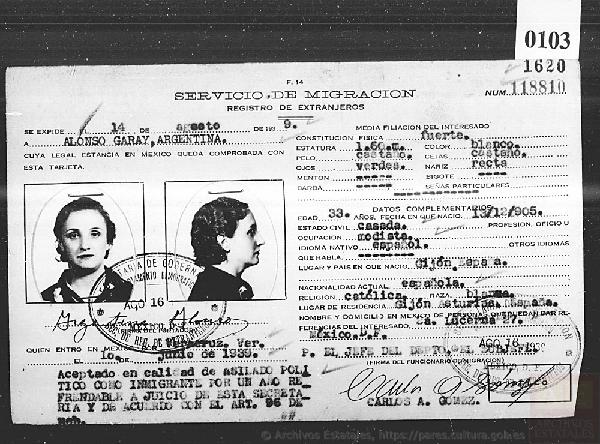 0103
1620
F. 14
SERVICIO DE MIGRACION
NUM. 118810
REGISTRO DE EXTRANJEROS
SE EXPIDE 14 DE agosto DE 1939.
A ALONSO GARAY, ARGENTINA.
CUYA LEGAL ESTANCIA EN MEXICO QUEDA COMPROBADA CON
ESTA TARJETA.
AGO 16
Argentina Alonso
QUIEN ENTRO EN MEXICO POR Veracruz, Ver.
EL 10. DE junio de 1939.
Aceptado en calidad de ASILADO POLI
TICO COMO INMIGRANTE POR UN AÑO RE
FRENDABLE A JUICIO DE ESTA SECRETA
RIA Y DE ACUERDO CON EL ART. 96 DE
MEDIA FILIACION DEL INTERESADO
CONSTITUCION FISICA fuerte.
ESTATURA 1.60 m. COLOR blanco.
PELO castaño. CEJAS castaño.
OJOS verdes. NARIZ recta
MENTON ----- BIGOTE ----
BARBA ----- SEÑAS PARTICULARES
DATOS COMPLEMENTARIOS
EDAD 33. AÑOS. FECHA EN QUE NACIO. 13/12/905.
ESTADO CIVIL casada. PROFESION, OFICIO U
OCUPACION modista.
IDIOMA NATIVO español. OTROS IDIOMAS
QUE HABLA
LUGAR Y PAIS EN QUE NACIO Gijón, España.
NACIONALIDAD ACTUAL española.
RELIGION católica. RAZA blanca.
LUGAR DE RESIDENCIA Gijón Asturias, España.
NOMBRE Y DOMICILIO EN MEXICO DE PERSONAS QUE PUEDAN DAR RE
FERENCIAS DEL INTERESADO, 8a. Lucerna 27.
México, D.F.
AGO 16 1939
P. EL JEFE DEL DEPTO.
FIRMA DEL FUNCIONARIO
CARLOS A. GOMEZ.
© Archivos Estatales, https://pares.cultura.gob.es